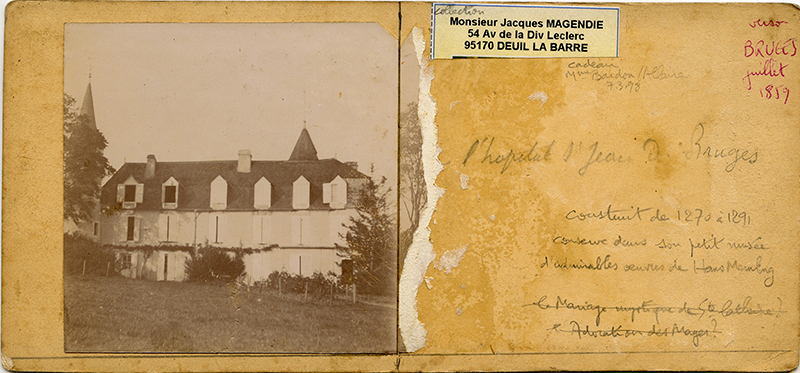 collection
Monsieur Jacques MAGENDIE
54 Av de la Div Leclerc
95170 DEUIL LA BARRE
cadeau
Mme Bardon/
7.3.98
verso
BRUGES
juillet
1859
l'hopital St Jean De Bruges
construit de 1270 à 1291
conserve dans son petit musée
d'admirables œuvres de Hans Memling
le Mariage mystique de Ste Catherine?
Adoration des Mages?